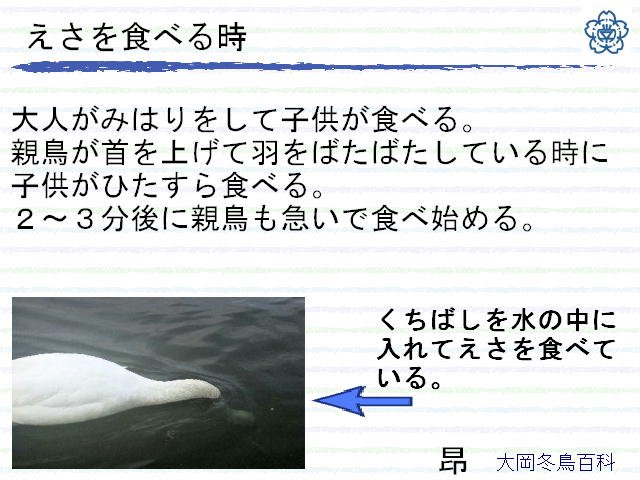 えさを食べる時
大人がみはりをして子供が食べる。
親鳥が首を上げて羽をばたばたしている時に
子供がひたすら食べる。
２～３分後に親鳥も急いで食べ始める。
くちばしを水の中に
入れてえさを食べて
いる。
昴
大岡冬鳥百科